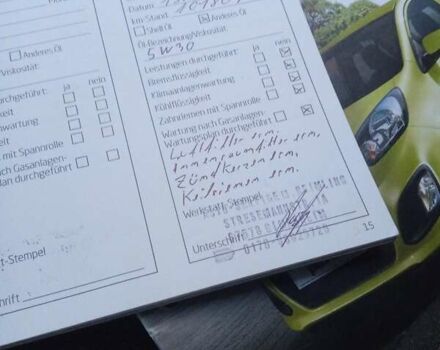 Datum
km-Stand
Shell Öl
Anderes Öl
Öl-Bezeichnung/Viskosität:
5W30
Leistungen durchgeführt: ja nein
Bremsflüssigkeit
Klimaanlagenwartung
Kühlflüssigkeit
Zahnriemen mit Spannrolle
Wartung nach Gasanlagen-
Wartungsplan durchgeführt
Luftfilter ern,
Innenraumfilter ern,
Zündkerzen ern,
Keilriemen ern,
Werkstatt-Stempel
STRESEMANNSTR.
Unterschrift
15
Anderes Öl
iskosität:
urchgeführt: ja nein
gkeit
wartung
eit
mit Spannrolle
h Gasanlagen-
plan durchgeführt
t-Stempel
chrift